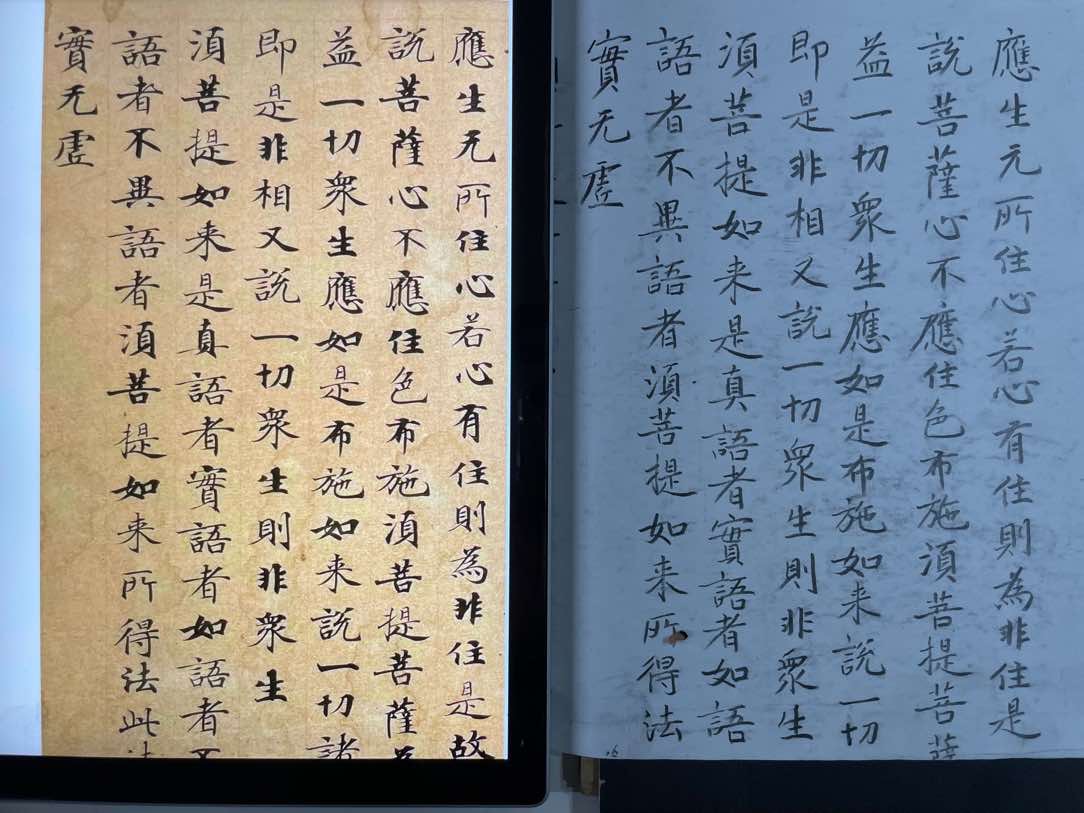 應生无所住心若心有住則為非住是故
說菩薩心不應住色布施湏菩提菩薩
益一切衆生應如是布施如来說一切諸
即是非相又說一切衆生則非衆生
湏菩提如来是真語者實語者如語者
語者不異語者湏菩提如来所得法此
實无虛
應生无所住心若心有住則為非住是
說菩薩心不應住色布施湏菩提菩薩
益一切衆生應如是布施如来說一切
即是非相又說一切衆生則非衆生
湏菩提如来是真語者實語者如語
語者不異語者湏菩提如来所得法
實无虛